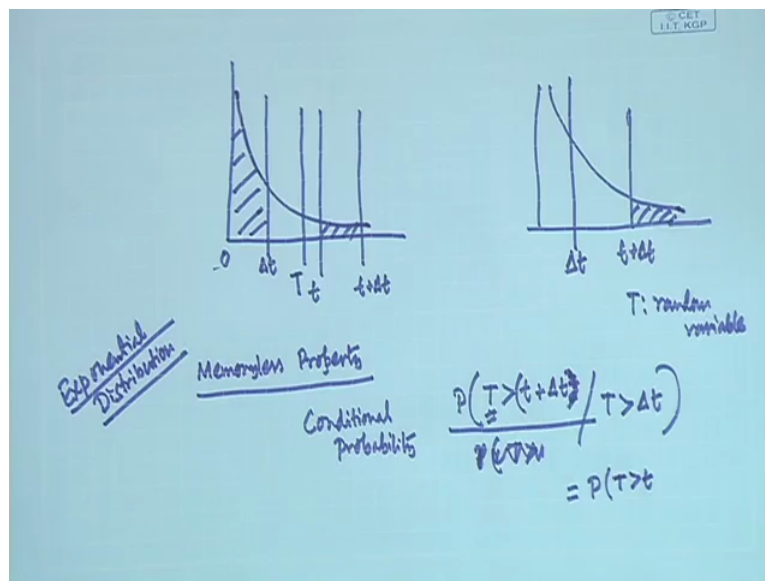 © CET
I.I.T. KGP
0
Δt
T
t
t+Δt
Δt
t+Δt
T: random
variable
Exponential
Distribution
Memoryless Property
Conditional
Probability
P(T>(t+Δt) / T>Δt)
= P(T>t